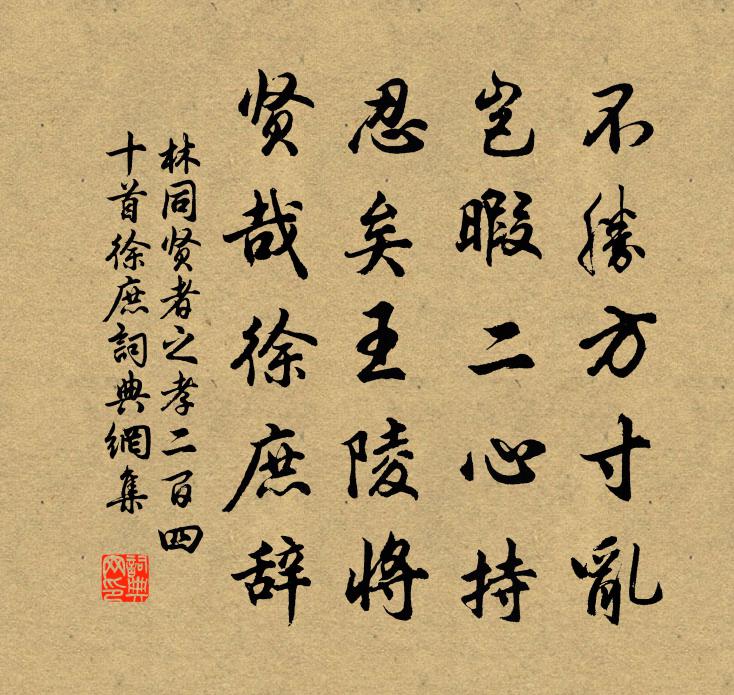 不勝方寸亂
岂暇二心持
忍矣王陵將
贤哉徐庶辞
林同贤者之孝二百四
十首徐庶詞典網集
詞典
网印